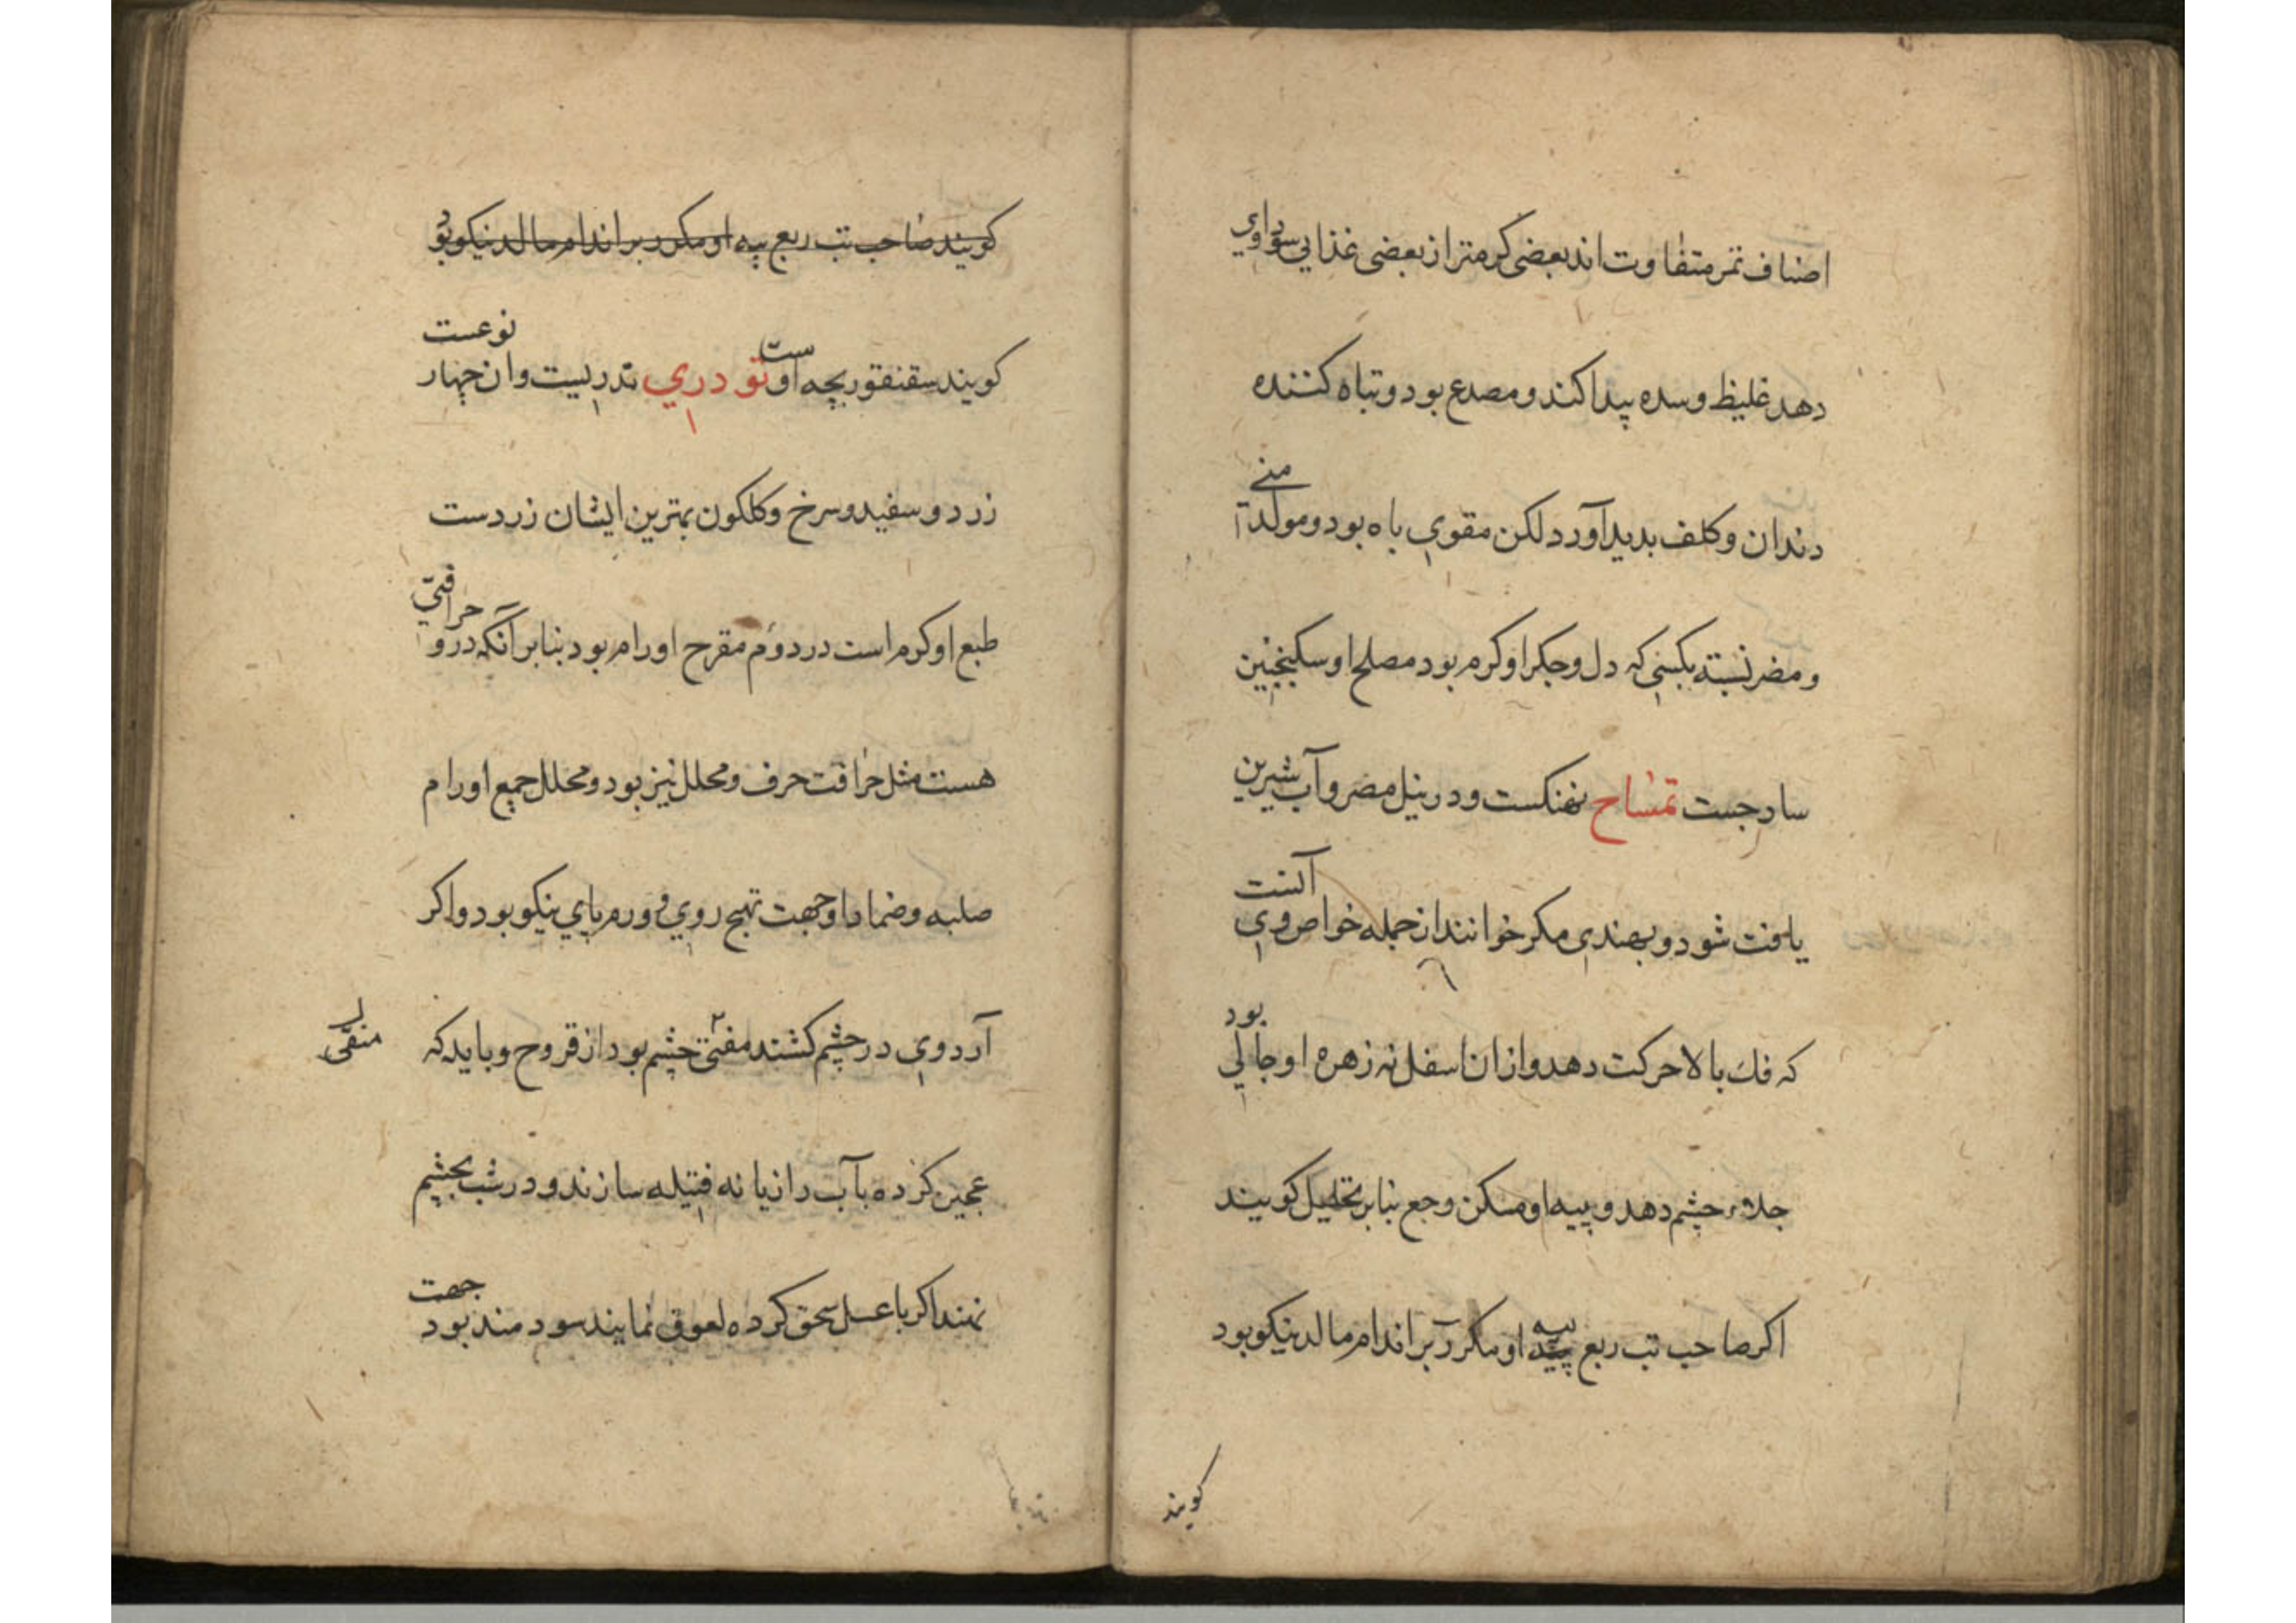 اصناف تمر متفاوت اند بعضی گرمتر از بعضی غذایی سوداوي
دهد غلیظ و سده پیدا کند و مصدع بود و تباه کننده
دندان و کلف بدید آورد لکن مقوي باه بود و مولد
منے
و مضر نسبته بکسی که دل و جکر او کرم بود مصلح او سکنجبین
ساد جست تمساح نهنکست و در نیل مصر و آب شیرین
یافت شود و بهندي مکر خوانند از جمله خواص وي
آنست
که فك بالا حرکت دهد و ازان اسفل نه زهره او جالي
بود
جلاء چشم دهد و پیه او مسکن وجع بنابر تحلیل کویند
اکر صاحب تب ربع پیه او مکرر بر اندام مالد نیکو بود
کویند
کویند صاحب تب ربع پیه او مکرر بر اندام مالد نیکو بود
کویند سقنقور بچه اوست تودري تدریست وان چهار
نوعست
زرد و سفید و سرخ و کلکون بهترین ایشان زردست
طبع او کرم است در دوم مقرح اورام بود بنابر آنکه درو
حرافتي
هست مثل حرافت حرف و محلل نیز بود و محلل جمیع اورام
صلبه و ضماد او جهت تهیج روي و ورم پاي نیکو بود و اکر
آرد وي در چشم کشند مفتی چشم بود از قروح و باید که
منقی
عجین کرده بآب رازیانه فتیله سازند و در شب بچشم
نهند اکر با عسل سحق کرده لعوق نمایند سودمند بود
جهت